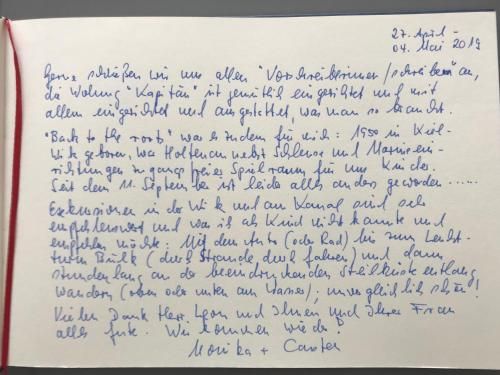 27. April -
04. Mai 2019
Gerne schließen wir uns allen "Vorschreiberinnen/schreibern" an,
die Wohnung "Kapitän" ist gemütlich eingerichtet und mit
allem eingerichtet und ausgestattet, was man so braucht.
"Back to the roots" war es zudem für mich: 1950 in Kiel-
Wik geboren, war Holtenau nebst Schleuse und Marineein-
richtungen zugangsfreier Spielraum für uns Kinder.
Seit dem 11. September ist leider alles anders geworden ......
Exkursionen in der Wik und am Kanal sind sehr
empfehlenswert und was ich als Kind nicht kannte und
empfehlen möchte: Mit dem Auto (oder Rad) bis zum Leucht-
turm Bülk (durch Strande, durch fahren) und dann
stundenlang an der beeindruckenden Steilküste entlang
wandern (oben oder unten am Wasser); unvergleichlich schön!
Vielen Dank Herr und Ihnen und Ihrer Frau
alles Gute. Wir kommen wieder!
Monika + Carsten